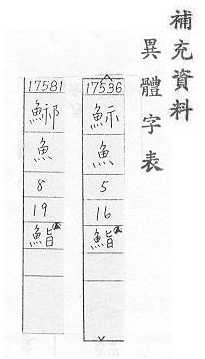 補充資料
異體字表
17536
魚
5
16
鮨
17581
魚
8
19
鮨